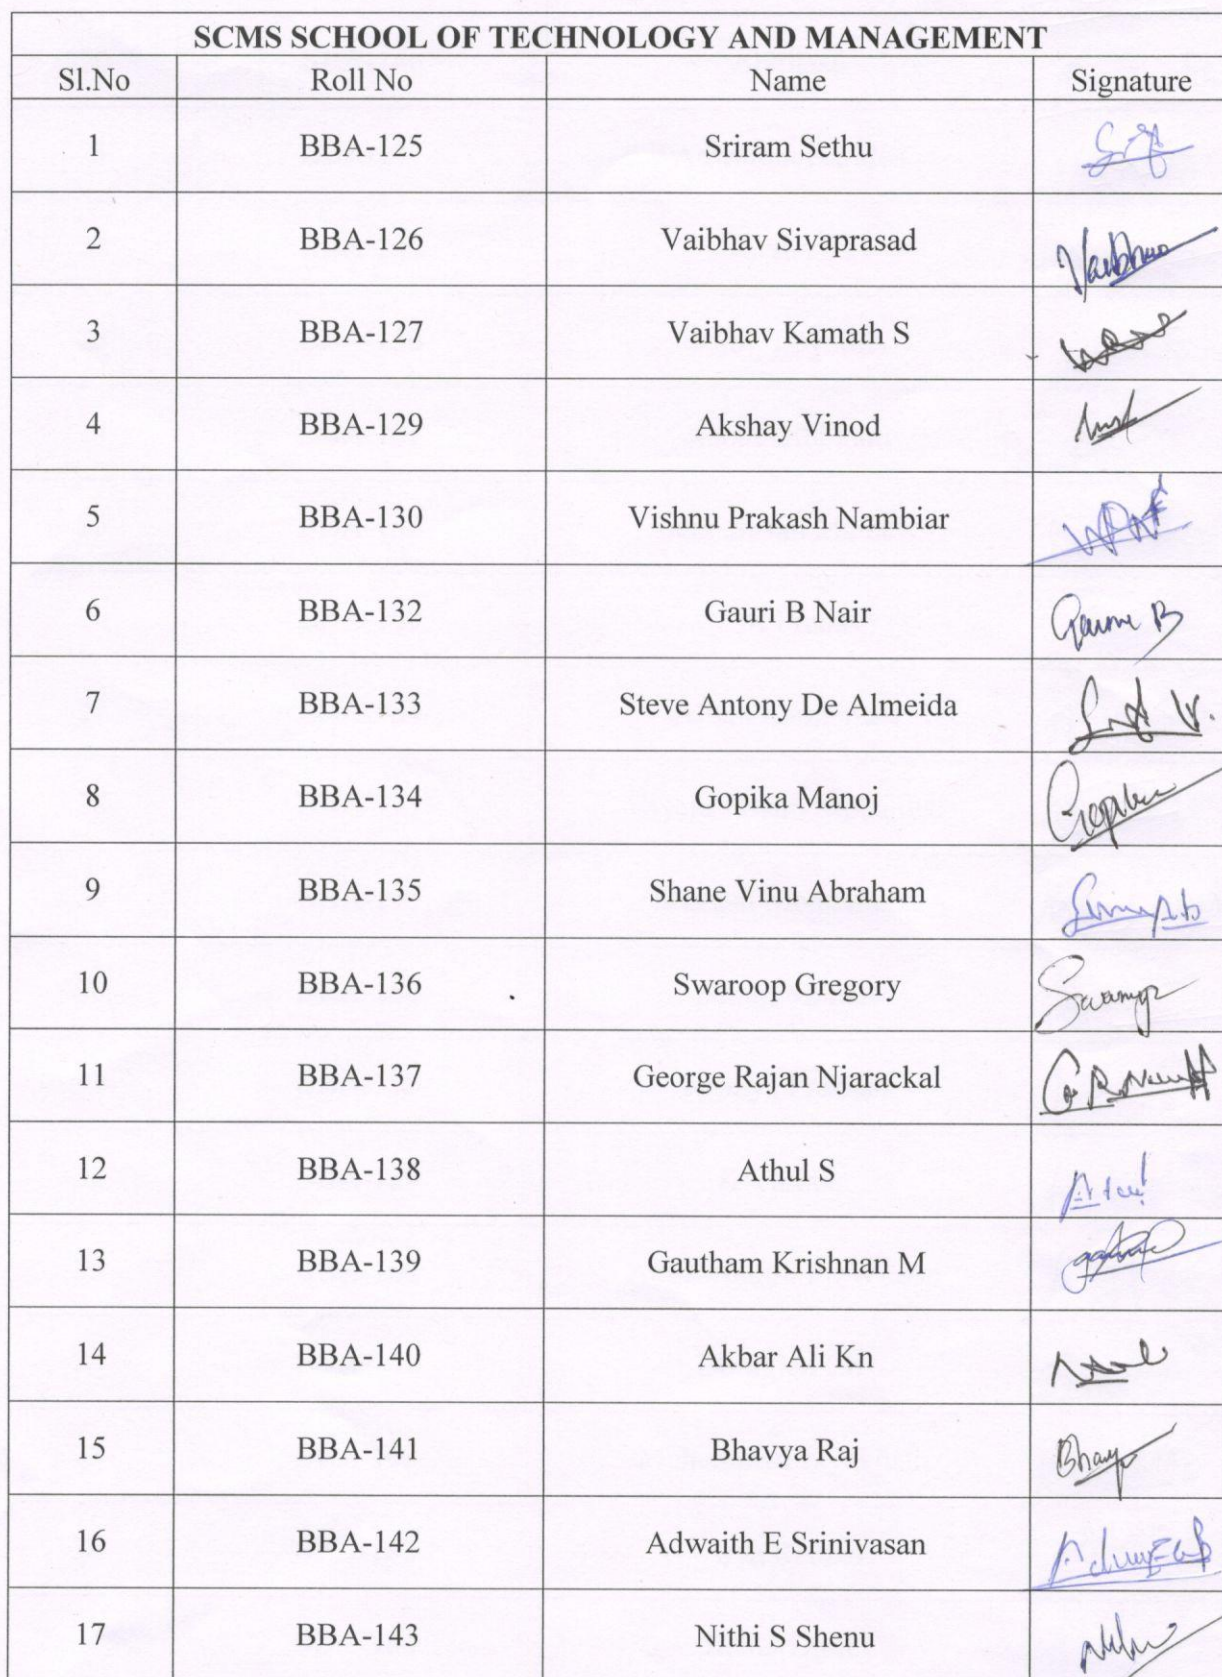 SCMS SCHOOL OF TECHNOLOGY AND MANAGEMENT
Sl.No Roll No Name Signature
1 BBA-125 Sriram Sethu
2 BBA-126 Vaibhav Sivaprasad Vaibhav
3 BBA-127 Vaibhav Kamath S
4 BBA-129 Akshay Vinod
5 BBA-130 Vishnu Prakash Nambiar
6 BBA-132 Gauri B Nair Gauri B
7 BBA-133 Steve Antony De Almeida
8 BBA-134 Gopika Manoj Gopika
9 BBA-135 Shane Vinu Abraham
10 BBA-136 Swaroop Gregory
11 BBA-137 George Rajan Njarackal
12 BBA-138 Athul S
13 BBA-139 Gautham Krishnan M
14 BBA-140 Akbar Ali Kn
15 BBA-141 Bhavya Raj
16 BBA-142 Adwaith E Srinivasan
17 BBA-143 Nithi S Shenu